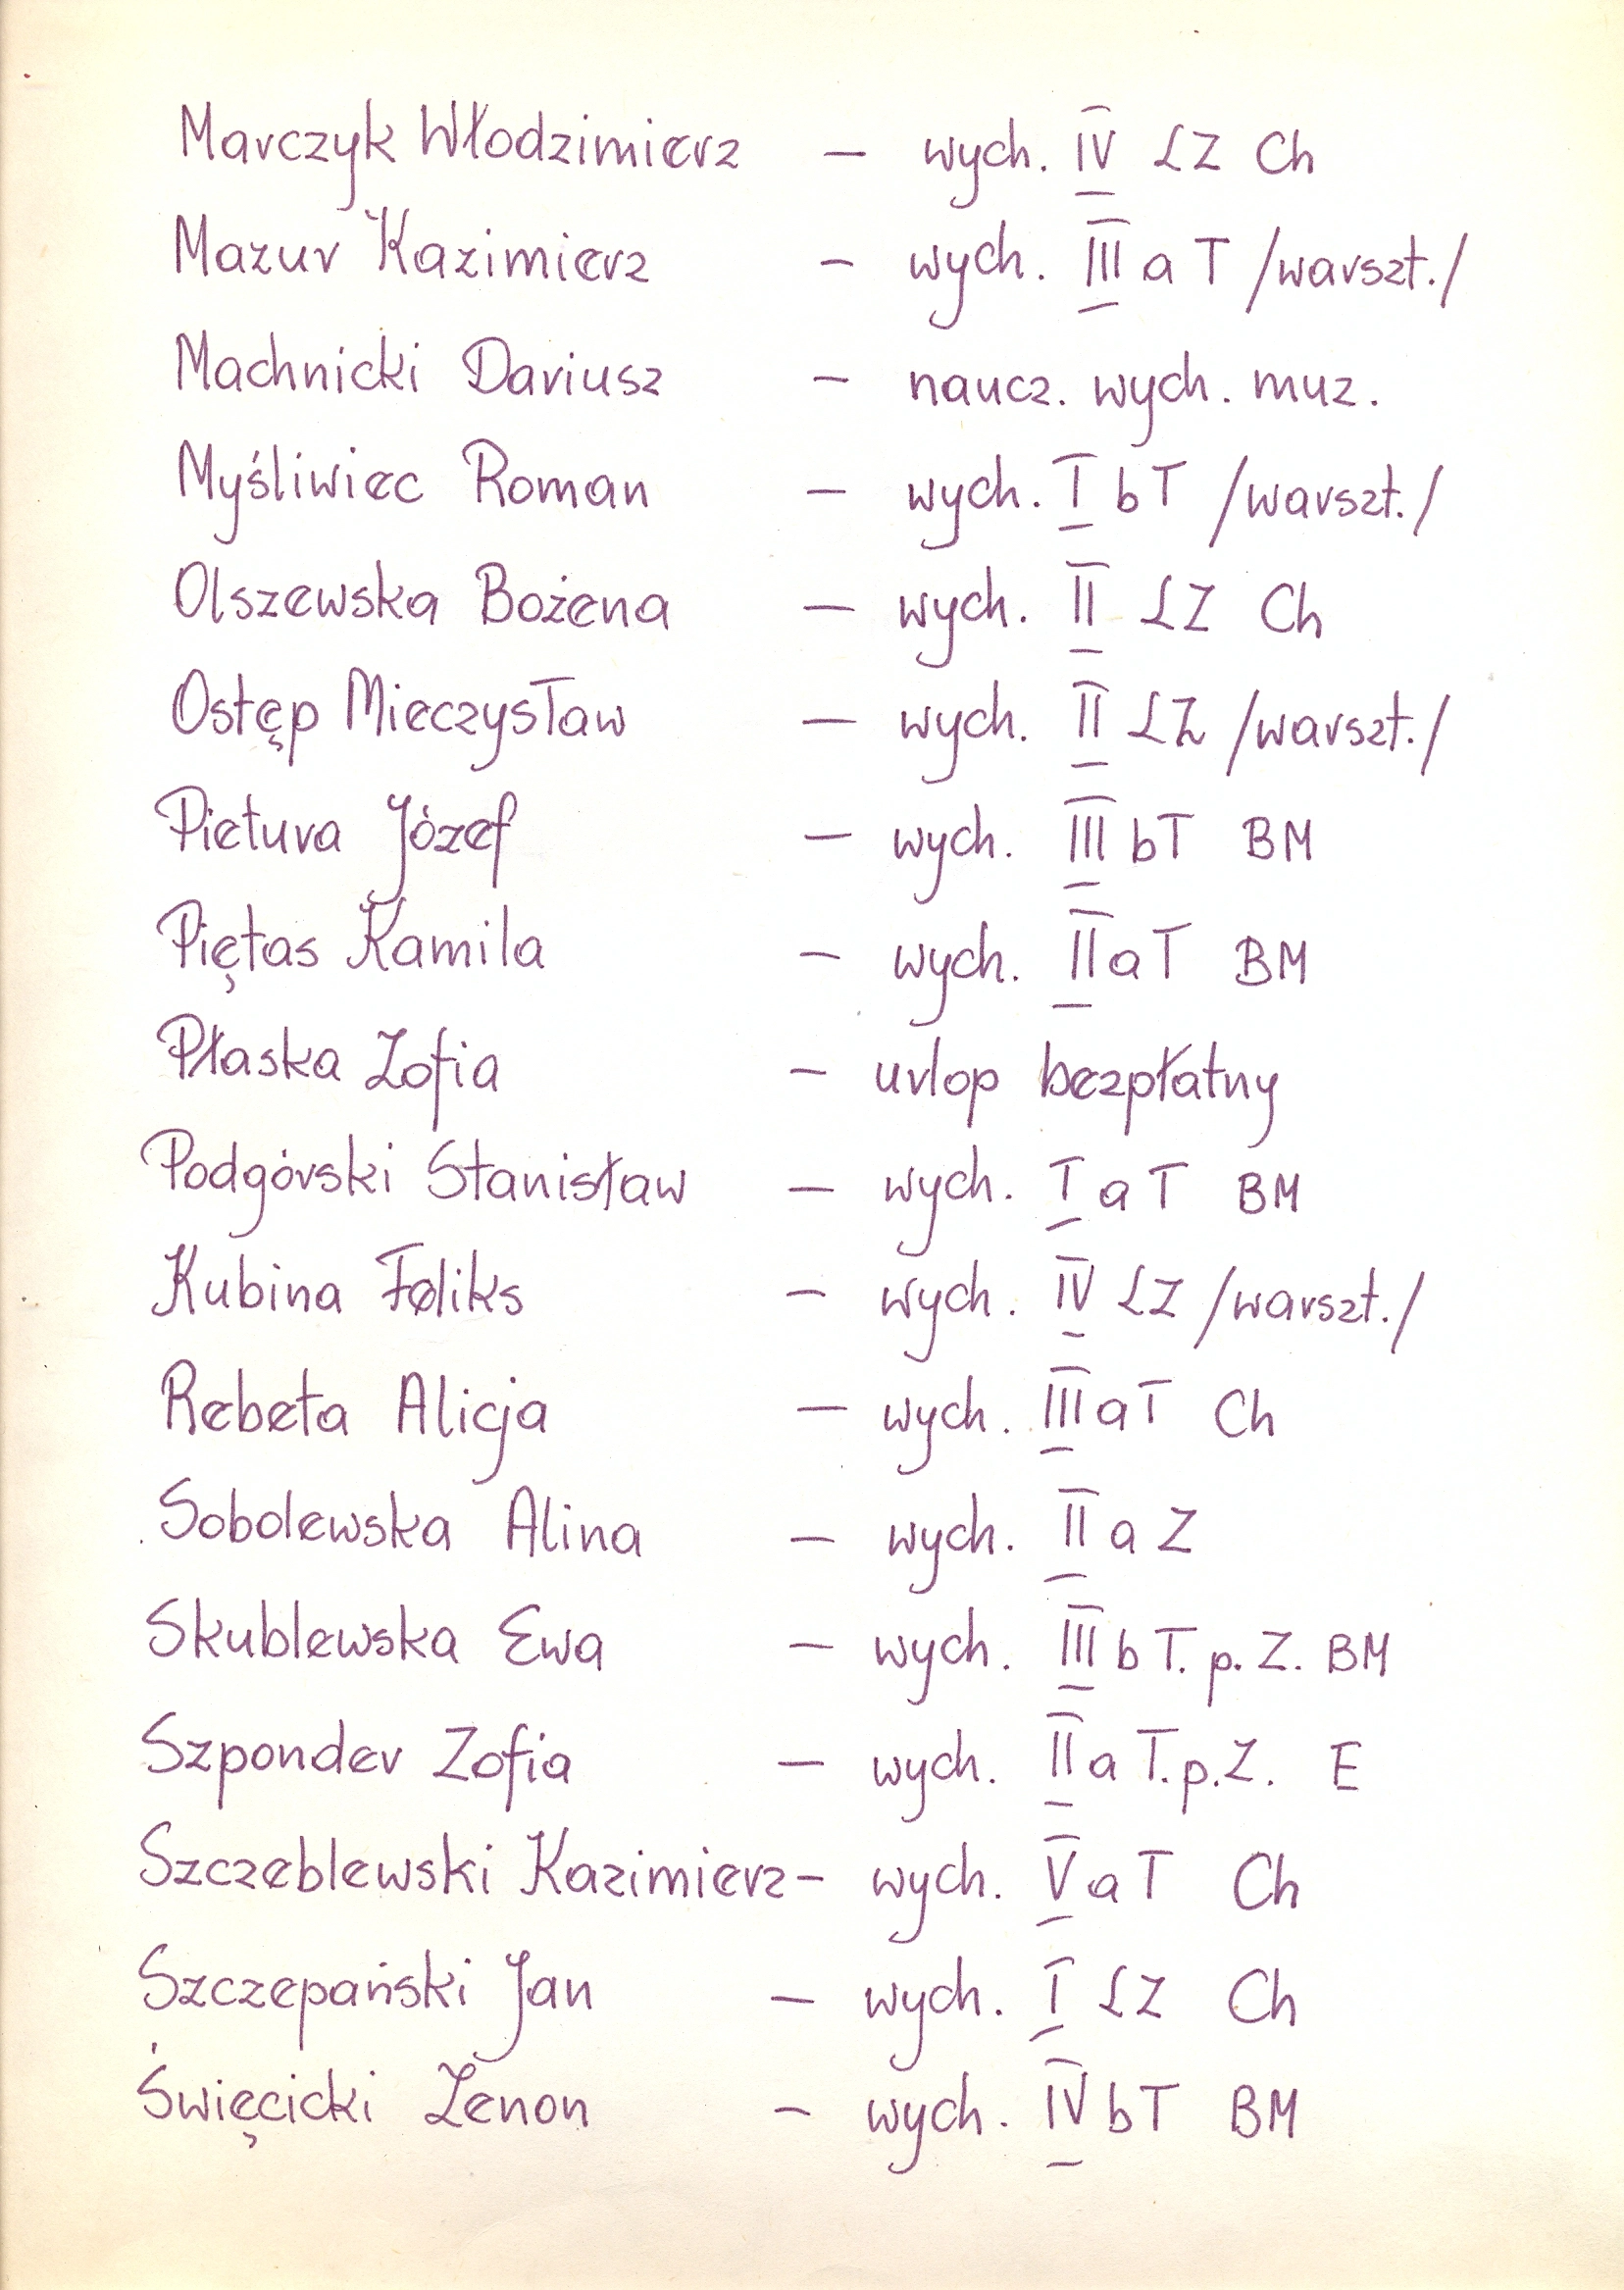 Marczyk Włodzimierz – wych. IV LZ Ch
Mazur Kazimierz – wych. III a T /warszt./
Machnicki Dariusz – naucz. wych. muz.
Myśliwiec Roman – wych. I b T /warszt./
Olszewska Bożena – wych. II LZ Ch
Ostęp Mieczysław – wych. II LZ /warszt./
Pietura Józef – wych. III b T BM
Piętas Kamila – wych. II a T BM
Płaska Zofia – urlop bezpłatny
Podgórski Stanisław – wych. I a T BM
Kubina Feliks – wych. IV LZ /warszt./
Rebeta Alicja – wych. III a T Ch
Sobolewska Alina – wych. II a Z
Skublewska Ewa – wych. III b T. p. Z. BM
Szponder Zofia – wych. II a T. p. Z. E
Szczeblewski Kazimierz – wych. V a T Ch
Szczepański Jan – wych. I LZ Ch
Święcicki Zenon – wych. IV b T BM